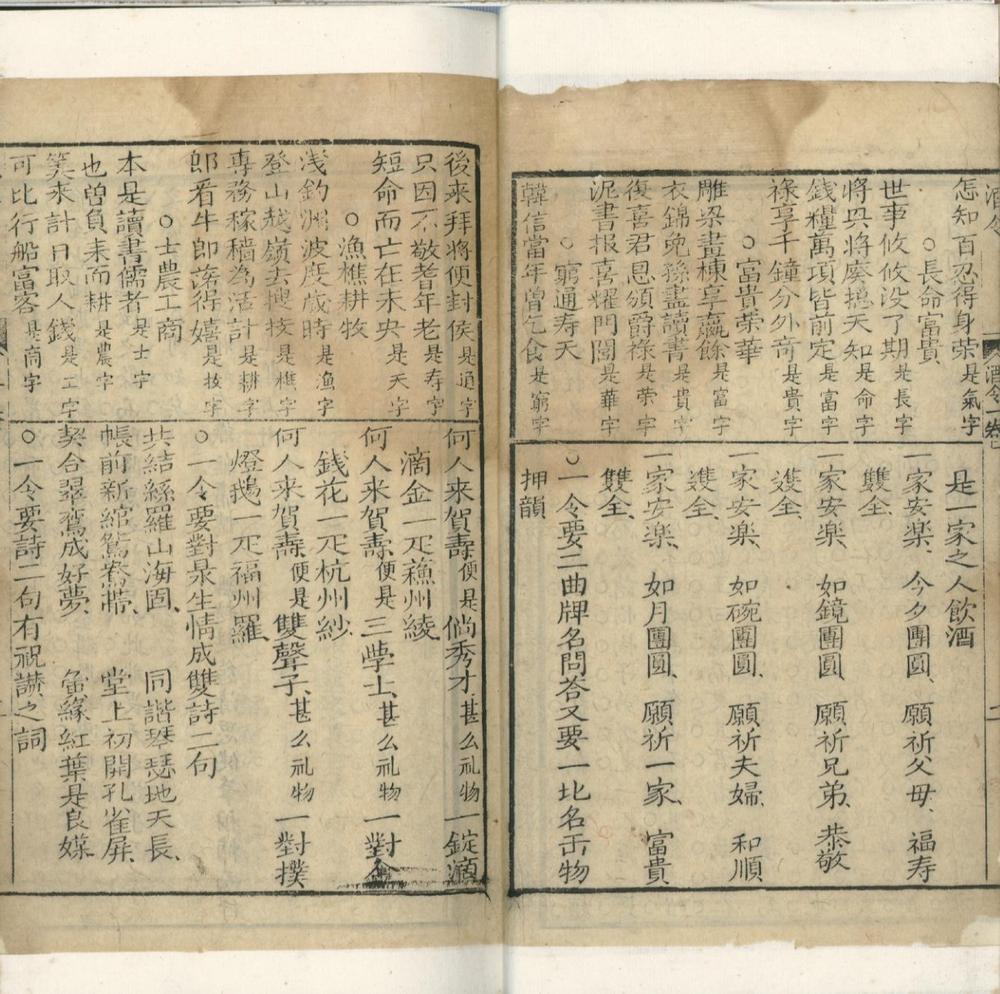 酒令
怎知百忍得身荣是氣字
○長命富貴
世事攸攸没了期是長字
將與將廢捴天知是命字
錢糧萬項皆前定是富字
禄享千鐘分外竒是貴字
○富貴荣華
雕梁畫棟享嬴餘是富字
衣錦兔孫盡讀書是貴字
復喜君恩頒爵禄是荣字
泥書报喜耀門閭是華字
○窮通寿夭
韓信當年曽乞食是窮字
是一家之人飲酒
一家安楽、今夕團圓、願祈父母、福寿
雙全、
一家安楽、如鏡團圓、願祈兄弟、恭敬
雙全、
一家安楽、如碗團圓、願祈夫婦、和順
雙全、
一家安楽、如月團圓、願祈一家、富貴
雙全、
○一令要二曲牌名問答又要一北名缶物
押韻
後来拜將便封侯是通字
只因不敬者年老是寿字
短命而亡在未央是夭字
○漁樵耕牧
浅釣洲波度歲時是漁字
登山越嶺去搜枝是樵字
專務稼穡為活計是耕字
郎看牛郎諾得嬉是技字
○士農工商
本是讀書儒者是士字
也曽負耒而耕是農字
笑来計日取人錢是工字
可比行船富客是商字
何人来賀壽、便是倘秀才、甚么礼物一錠滴
滴金一疋蘓州綾、
何人来賀壽、便是三學士、甚么礼物一對金
錢花一疋杭州紗、
何人来賀壽、便是雙聲子、甚么礼物一對撲
燈鵝一疋福州羅、
○一令要對景生情成雙詩二句
共結絲羅山海固、同諧琴瑟地天長、
帳前新綰鴛鴦牒、堂上初開孔雀屏、
契合翠鸞成好夢、夤緣紅葉是良媒、
○一令要詩二句有祝讃之詞